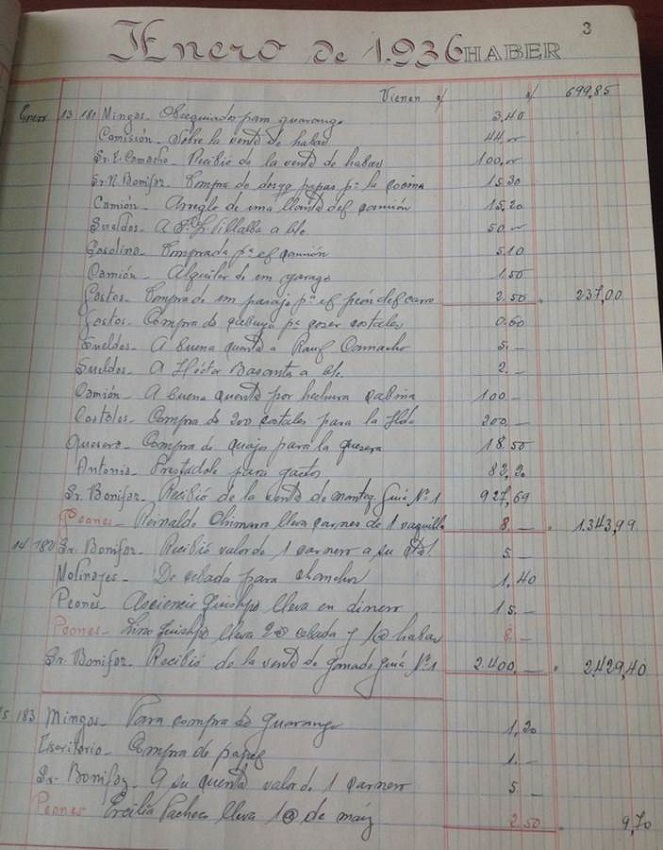 3
Enero de 1.936 HABER
Vienen $/ $/ 699,85
Enero 13 181 Mingas - Obsequiados para guarango 3,40
Comisión - Sobre la venta de habas 44,oo
Sr. E. Camacho - Recibió de la venta de habas 100,oo
Sr. N. Bonifaz - Compra de papas pª la cocina 15.30
Camión - Arreglo de una llanta del camión 15,20
Sueldos - A Villalba a b/c 50.--
Gasolina - Comprada pª el camión 5,10
Camión - Alquiler de un garage 1,50
Gastos - Compra de un pasaje pª el peón del carro 2.50 " 237,00
Gastos - Compra de cabuya pª cozer costales 0.60
Sueldos - A buena cuenta a Raul Camacho 5.-
Sueldos - A Héctor Basantes a b/c. 2.-
Camión - A buena cuenta por hechura cabina 100.-
Costales - Compra de 200 costales para la Hda 200,-
Quesera - Compra de quajo para la quesera 18.50
Antonio Prestadole para gastos 82,20
Sr. Bonifaz - Recibió de la venta de manteq. Guía Nº 1 927,69
Peones - Reinaldo lleva carnes de 1 vaquilla 8.- " 1.343,99
14 182 Sr. Bonifaz - Recibió valor de 1 carnero a su 5.-
Molinajes - De cebada para chanchos 1,40
Peones Quishpe lleva en dinero 15.-
Peones - Lino Quishpe lleva 2@ cebada y 1@ habas 6.-
Sr. Bonifaz - Recibió de la venta de Ganado Guía Nº 1 2.400,- " 2,429,40
15 183 Mingas - Para compra de Guarango 1,20
Escritorio - Compra de papel 1.-
Sr - Bonifaz - A su cuenta valor de 1 carnero 5 -
Peones Ercilia Pacheco lleva 1@ de maíz 2.50 " 9,70